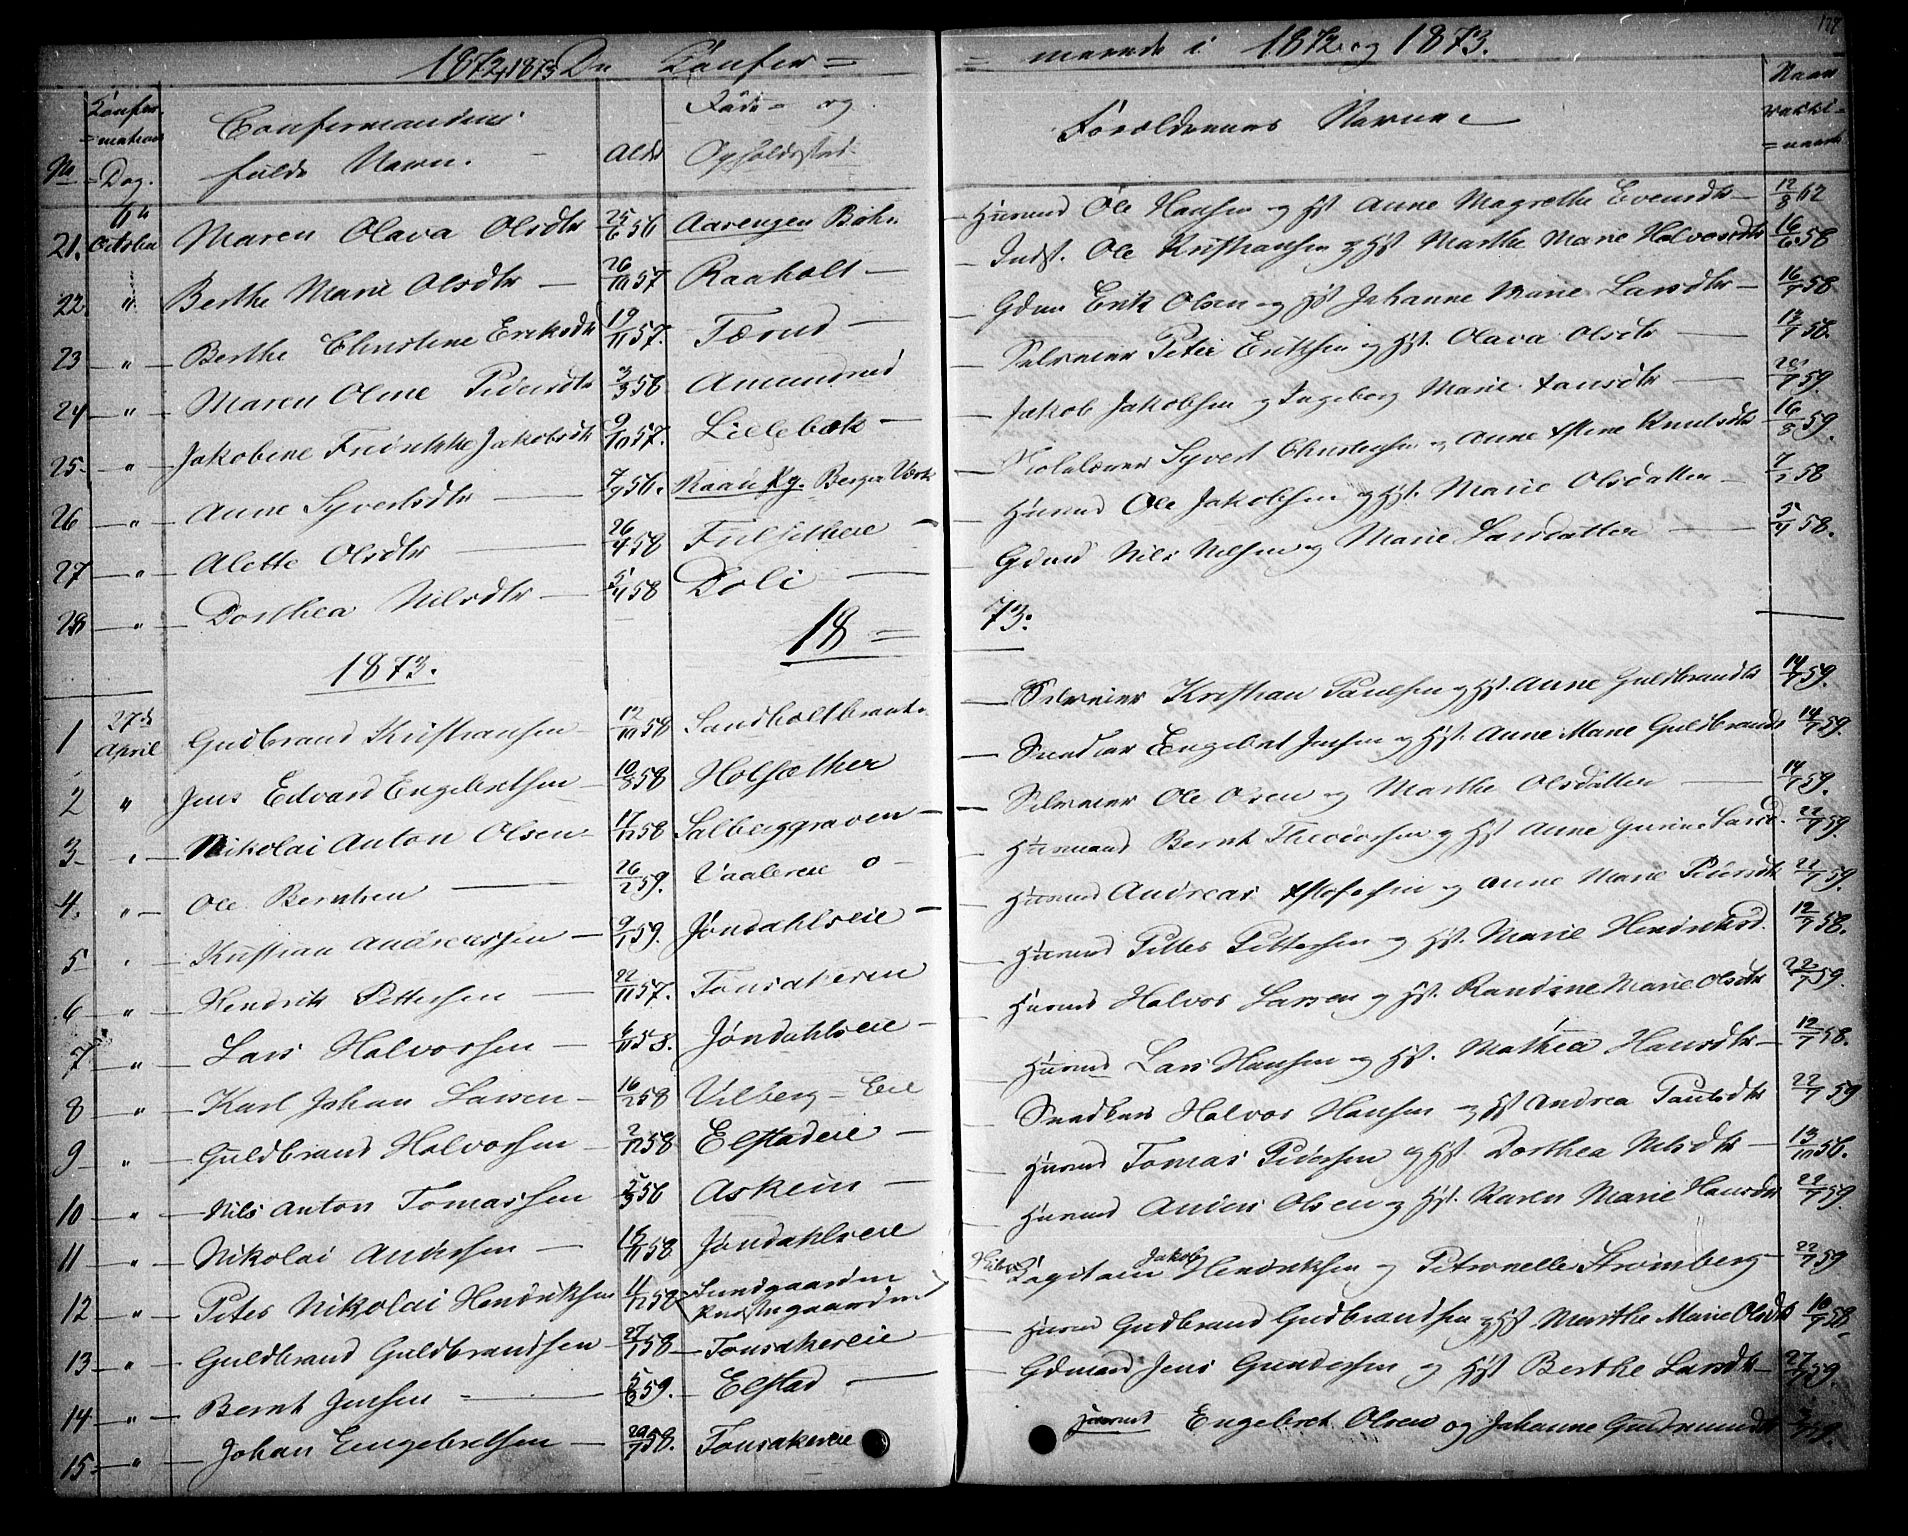 1872, 1873 De Confir =
= merede i 1872 og 1873.
No
Confir
= mations
= Dag.
Confirmandens
fulde Navn.
Alder
Føde - og
Opholdssted
Forældrenes Navne
Naar
vakci =
= nerede
21. 6te October Maren Olava Olsdtr 25/6 56 Aarengen Bøhn — Husmd Ole Hansen og Hst Anne Magrethe Evensdtr — 12/8 62
22. " Berthe Marie Olsdtr — 26/10 57 Raaholt — Indst. Ole Kristiansen og Hst Marthe Marie Halvorsdtr 16/6 58
23 — " — Berthe Christine Eriksdtr 19/11 57. Færud — Gdm Erik Olsen og Hst Johanne Marie Larsdtr — 16/9 58
24 — " — Maren Oline Pedersdtr 3/3 58 Amundrud — Selveier Peter Eriksen og Hst. Olava Olsdtr — 13/7 58.
25 — " — Jakobine Fredrikke Jakobsdtr 9/10 57. Lillebæk — Jakob Jakobsen og Ingeborg Marie Hansdtr — 59.
26 — " — Anne Syvertsdtr — 7/9 56. Berger Værk — Syvert Christensen og Anne Knutsdtr 16/8 59.
27 — " — Alette Olsdtr — 26/4 58 — Husmd Ole Jakobsen og Hst. Marie Olsdatter — 58
28 — " — Dorthea Nilsdtr — 5/4 58 Doli — Gdmd Nils Nilsen og Marie Larsdatter — 5/4 58.
18 = 73.
1873.
1 27de April Gudbrand Kristiansen — 12/10 58 Sandholtbraate — Selveier Kristian Paulsen og Hst. Anne Guldbrandsdtr 14/7 59.
2 " Jens Edvard Engebretsen — 10/8 58 Holsæther — Engebret Jensen og Hst. Anne Marie Guldbrands 14/7 59.
3 — " — Nikolai Anton Olsen — 17/12 58 Salberggraven — Selveier Ole Olsen og Marthe Olsdatter — 14/7 59.
4. " — Ole Berntsen — 26/2 59. Vaalereie — Husmand Bernt Theodorsen og Hst Anne Gurine Larsd. 22/7 59.
5 " Kristian Andreassen — 9/1 59. Jøndahlseie — Husmd Andreas og Anne Marie Pedersdtr 22/7 59.
6 — " — Hendrik Pettersen — 22/11 57. Tonsakereie — Husmd Petter Pettersen og Hst. Marie Hendriksd. 12/7 58.
7 — " — Lars Halvorsen — 6/11 58. Jøndahlseie — Husmd Halvor Larsen og Hst. Randine Marie Olsdtr 22/7 59.
8 — " — Karl Johan Larsen — 16/2 58 Vilberg — Eie — Husmd Lars Hansen og Hst. Mathea Hansdtr — 12/7 58.
9 — " — Guldbrand Halvorsen — 2/12 58 Elstadeie — Snedker Halvor Hansen og Hst Andrea Paulsdtr 22/7 59
10 — " — Nils Anton Tomassen 5/3 56 Askeim — Husmd Tomas Pedersen og Hst. Dorthea Nilsdtr — 13/10 56.
11 — " — Nikolai Andersen — 58 Jøndahlseie — Husmd Anders Olsen og Hst. Karen Marie Hansdtr 22/7 59.
12 — " — Peter Nikolai Hendriksen 11/12 58 Sundgaarden — Kapitain Jakob Hendriksen og Petronelle Strømberg — 22/7 59
13 — " — Guldbrand Guldbrandsen — 27/7 58 — Tonsakereie — Husmd Gudbrand Gudbrandsen og Hst Marthe Marie Olsdtr 10/9 58
14 — " — Bernt Jensen — 59. — Elstad — Gdmand Jens Gundersen og Hst Berthe Larsdtr — 27/7 59.
15 — " — Johan Engebretsen — 29/7 58. Tonsakereie — Husmd Engebret Olsen og Johanne Gudmundsdtr